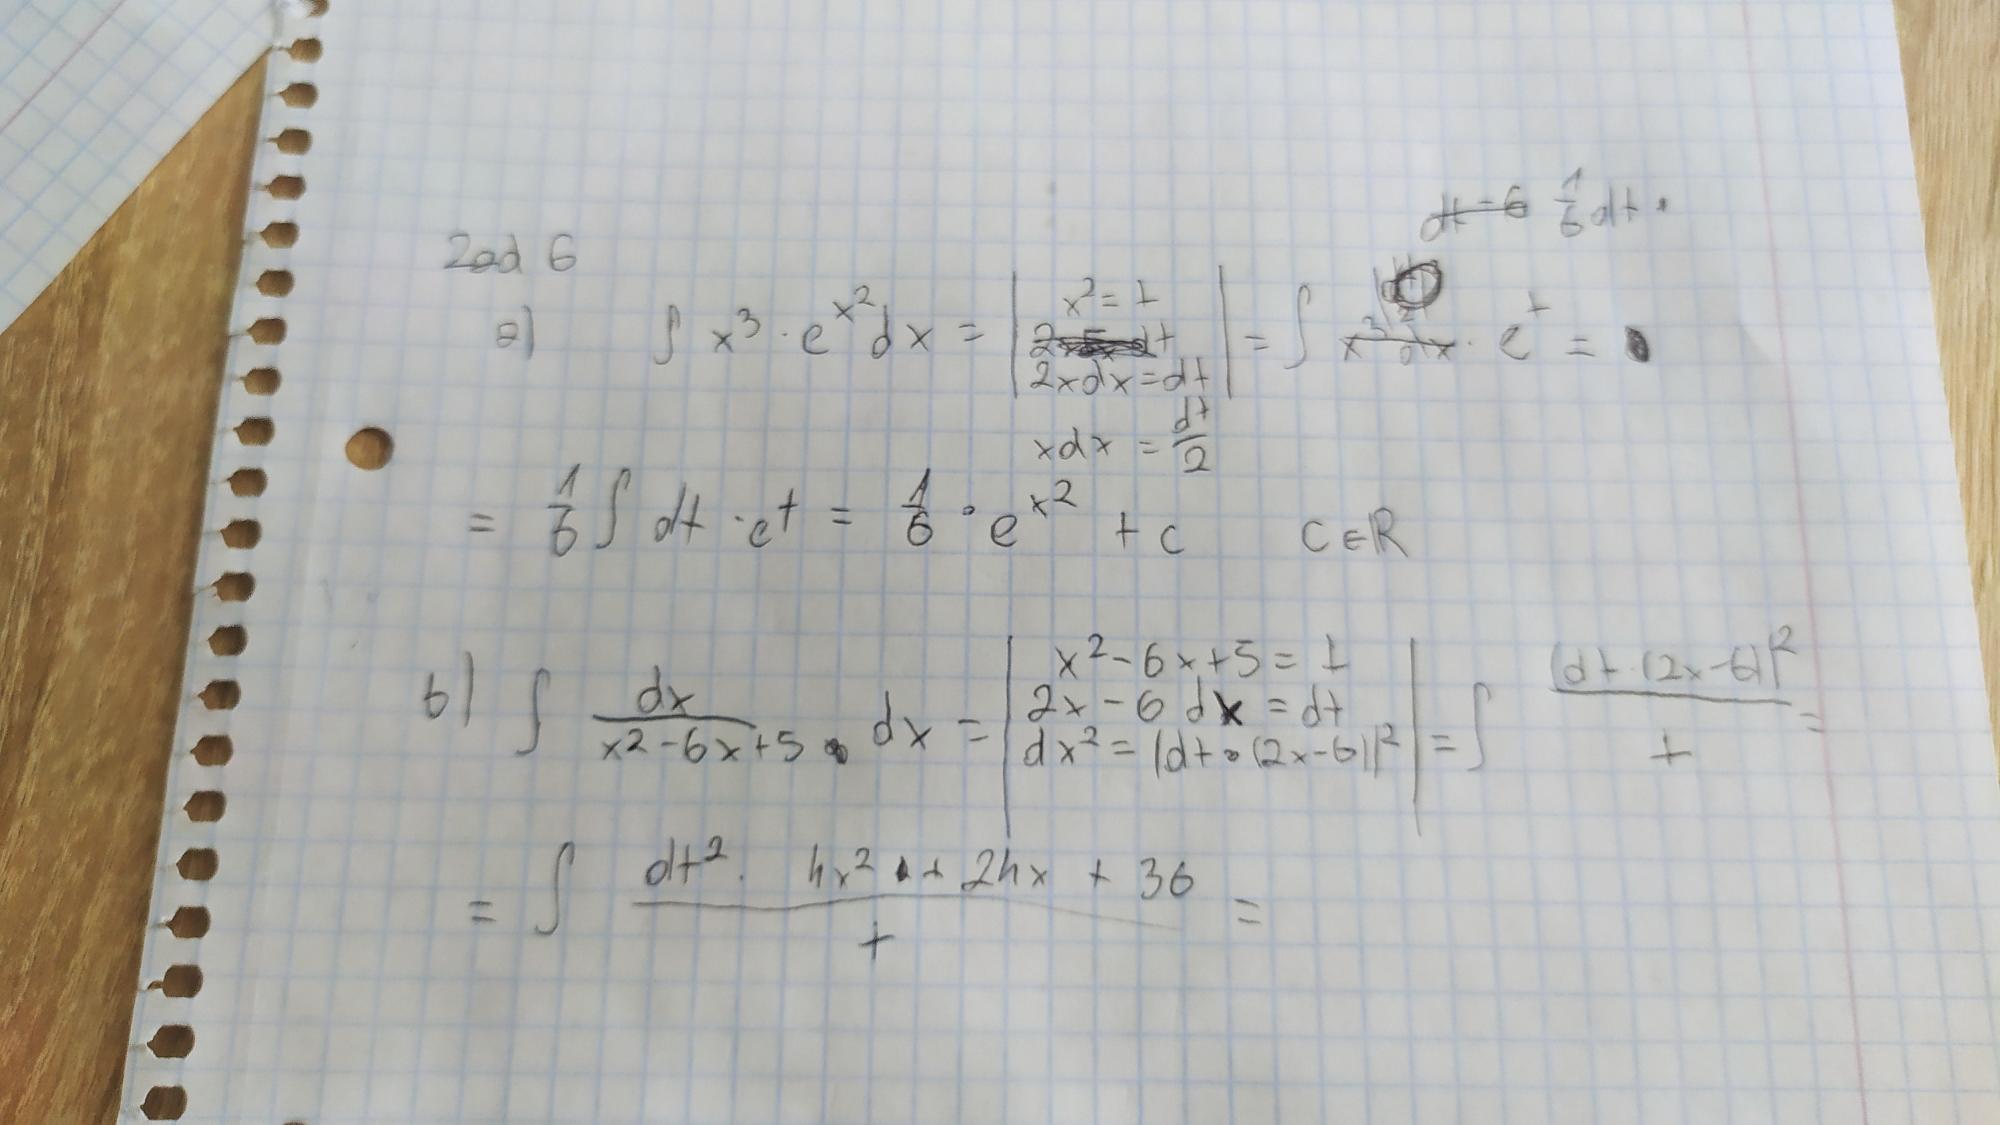 dt = 6 1/6 dt.
Zad 6
a) ∫ x³ · e^x² dx = | x² = t
2xdx = dt | = ∫ x³ dx · e^t =
xdx = dt/2
= 1/6 ∫ dt · e^t = 1/6 · e^x² + c c ∈ R
b) ∫ dx/(x2-6x+5) dx = | x² - 6x + 5 = t
2x - 6 dx = dt
dx² = (dt · (2x-6))² | = ∫ (dt · (2x-6))²/t =
= ∫ (dt² · 4x² + 24x + 36)/t =